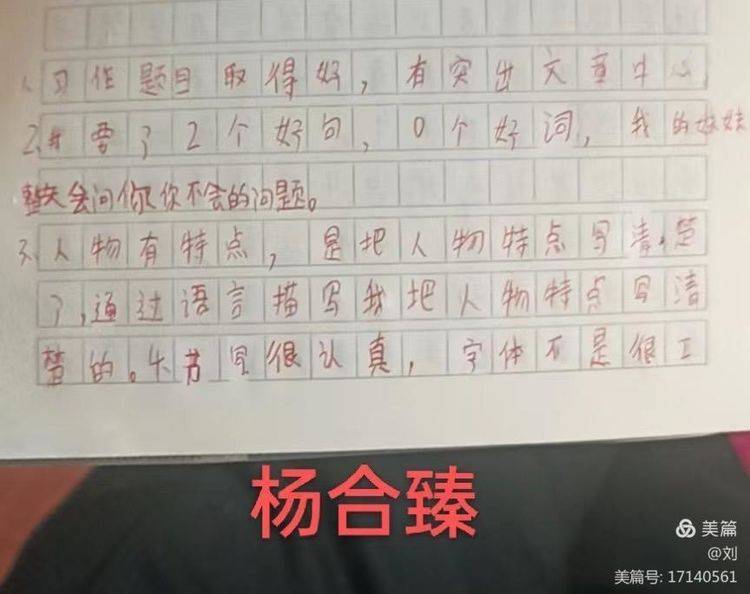 1、习作题目取得好，有突出文章中心
2、我要了2个好句，0个好词，我的妹妹
整天会问你你不会的问题。
3、人物有特点，是把人物特点写清楚
了，通过语言描写我把人物特点写清
楚的。4、书写很认真，字体不是很工
杨合臻
美篇
@刘
美篇号: 17140561